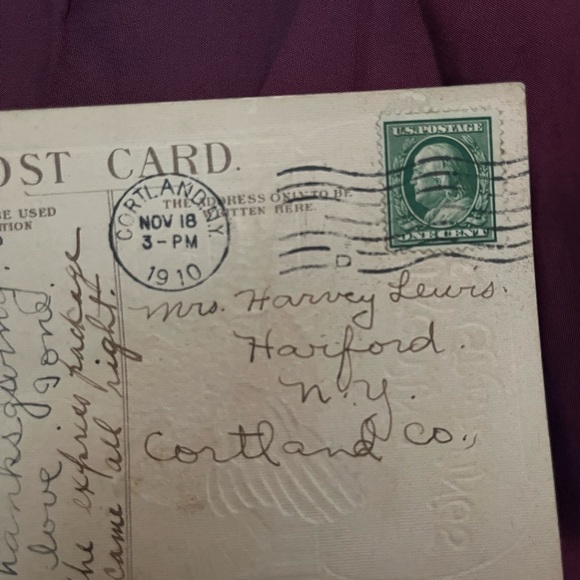 OST CARD.
THE ADDRESS ONLY TO BE
WRITTEN HERE.
BE USED
CORTLAND N.Y.
NOV 18
3-PM
1910
U.S. POSTAGE
ONE CENT
D
Mrs. Harvey Lewis.
Harford.
N.Y.
Cortland Co.,
hanksgiving.
love Ione.
the express package
came all right.